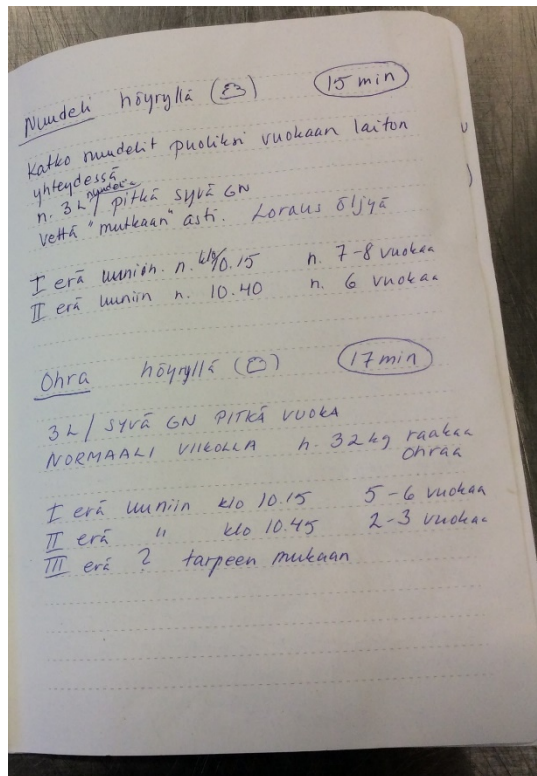 Nuudeli höyryllä ( ) 15 min
Katko nuudelit puoliksi vuokaan laiton
yhteydessä
nuudelia
n. 3L / pitkä syvä GN
vettä "mutkaan" asti. Loraus öljyä
I erä uuniin n. klo 10.15 n. 7-8 vuokaa
II erä uuniin n. 10.40 n. 6 vuokaa
Ohra höyryllä ( ) 17 min
3L / SYVÄ GN PITKÄ VUOKA
NORMAALI VIIKOLLA n. 32 kg raakaa
ohraa
I erä uuniin klo 10.15 5-6 vuokaa
II erä " klo 10.45 2-3 vuokaa
III erä ? tarpeen mukaan